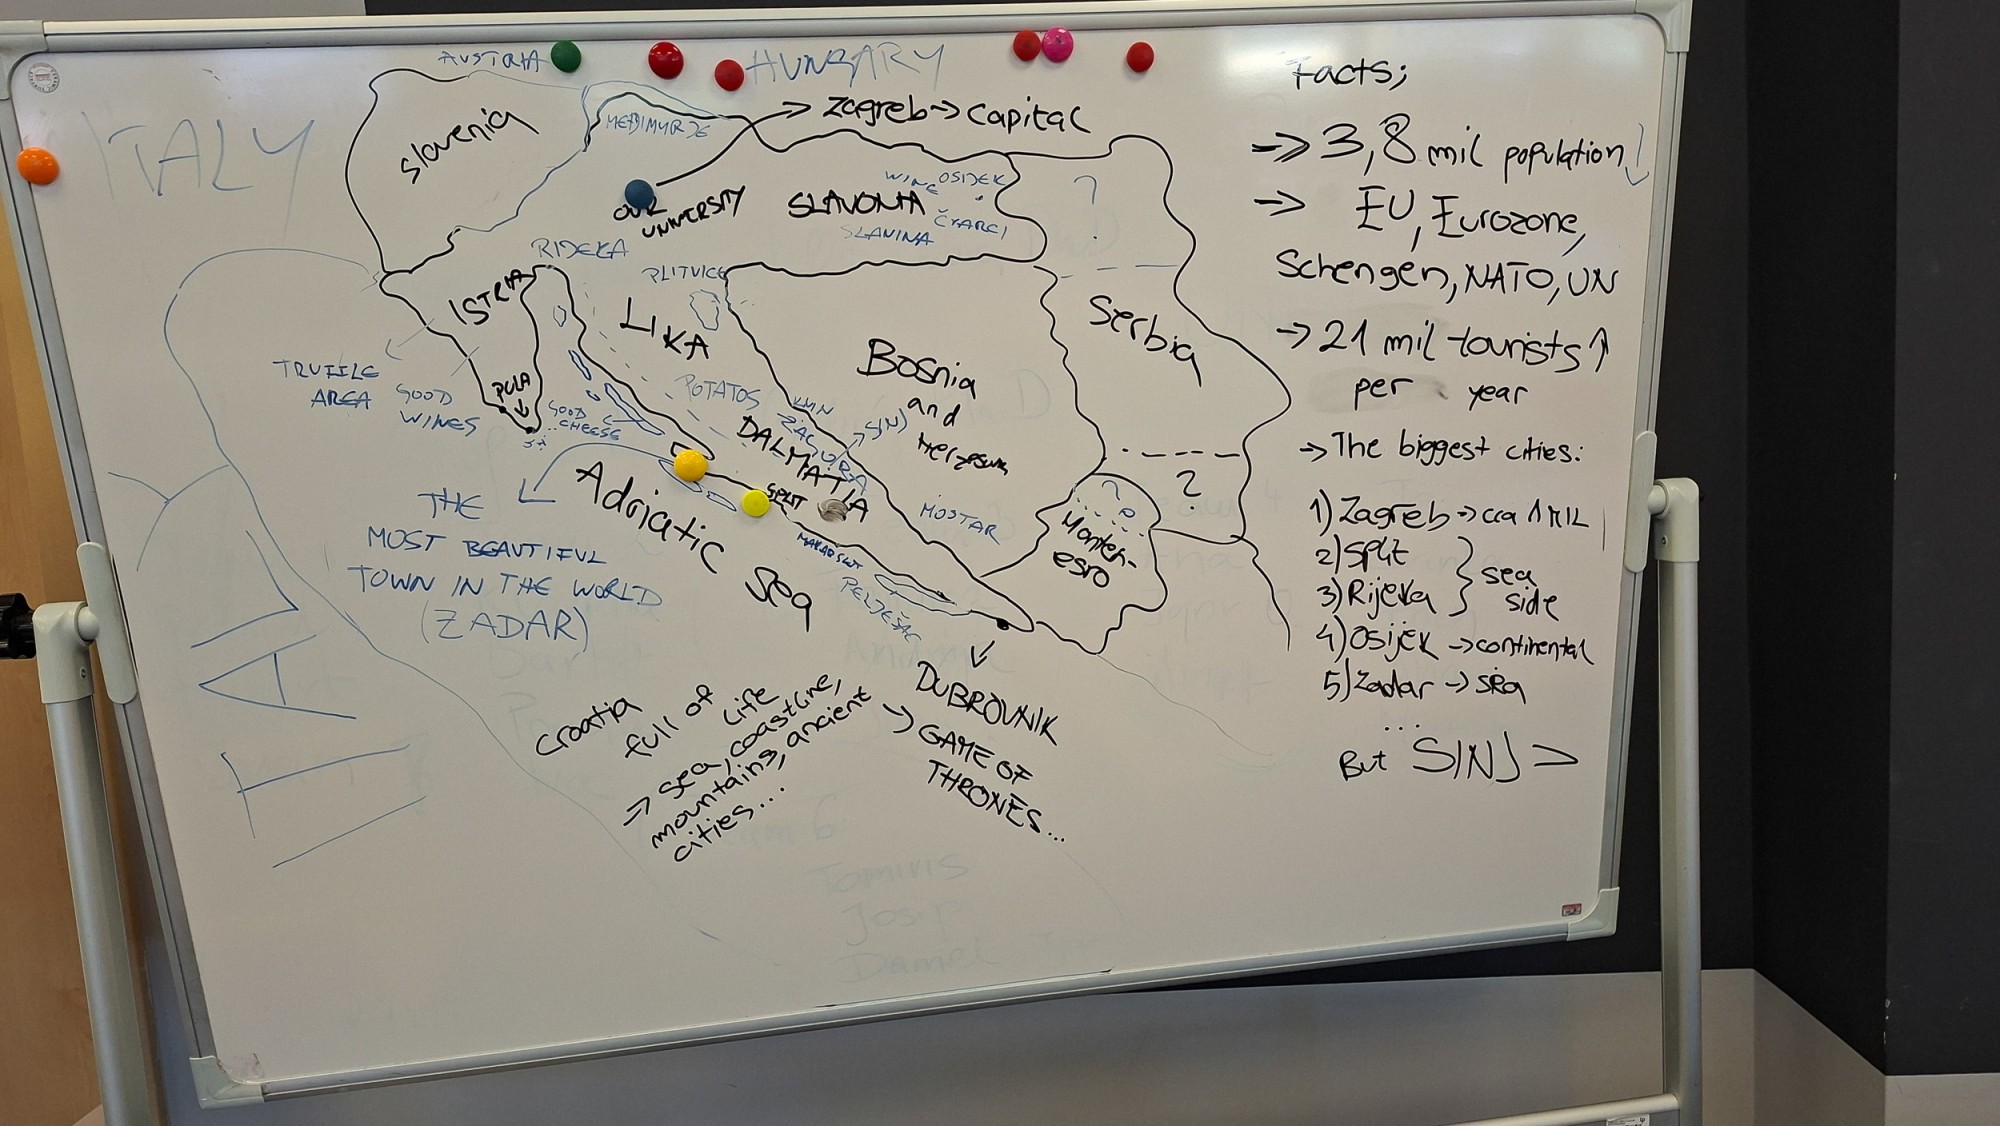 AUSTRIA
HUNGARY
ITALY
Slovenia
MEĐIMURJE
→ Zagreb → capital
OUR
UNIVERSITY
SLAVONIA
WINE
OSIJEK
ČVARCI
SLANINA
?
RIJEKA
PLITVICE
ISTRIA
LIKA
Bosnia
and
Serbia
TRUFFLE
AREA
GOOD
WINES
PULA
GOOD
CHEESE
POTATOS
KNIN
SINJ
DALMATIA
SPLIT
MOSTAR
?
?
Monten-
egro
MAKARSKA
PELJEŠAC
Adriatic
Sea
THE
MOST BEAUTIFUL
TOWN IN THE WORLD
(ZADAR)
ITALY
DUBROVNIK
→ GAME OF
THRONES...
Croatia
full of
life
→ sea, coastline,
mountains, ancient
cities....
Facts;
→ 3,8 mil population ↓
→ EU, Eurozone,
Schengen, NATO, UN
→ 21 mil tourists ↑
per year
→ The biggest cities:
1) Zagreb → cca 1 MIL
2) Split
3) Rijeka
sea
side
4) Osijek → continental
5) Zadar → sea
...
But SINJ >
Tomiris
Josip
Daniel